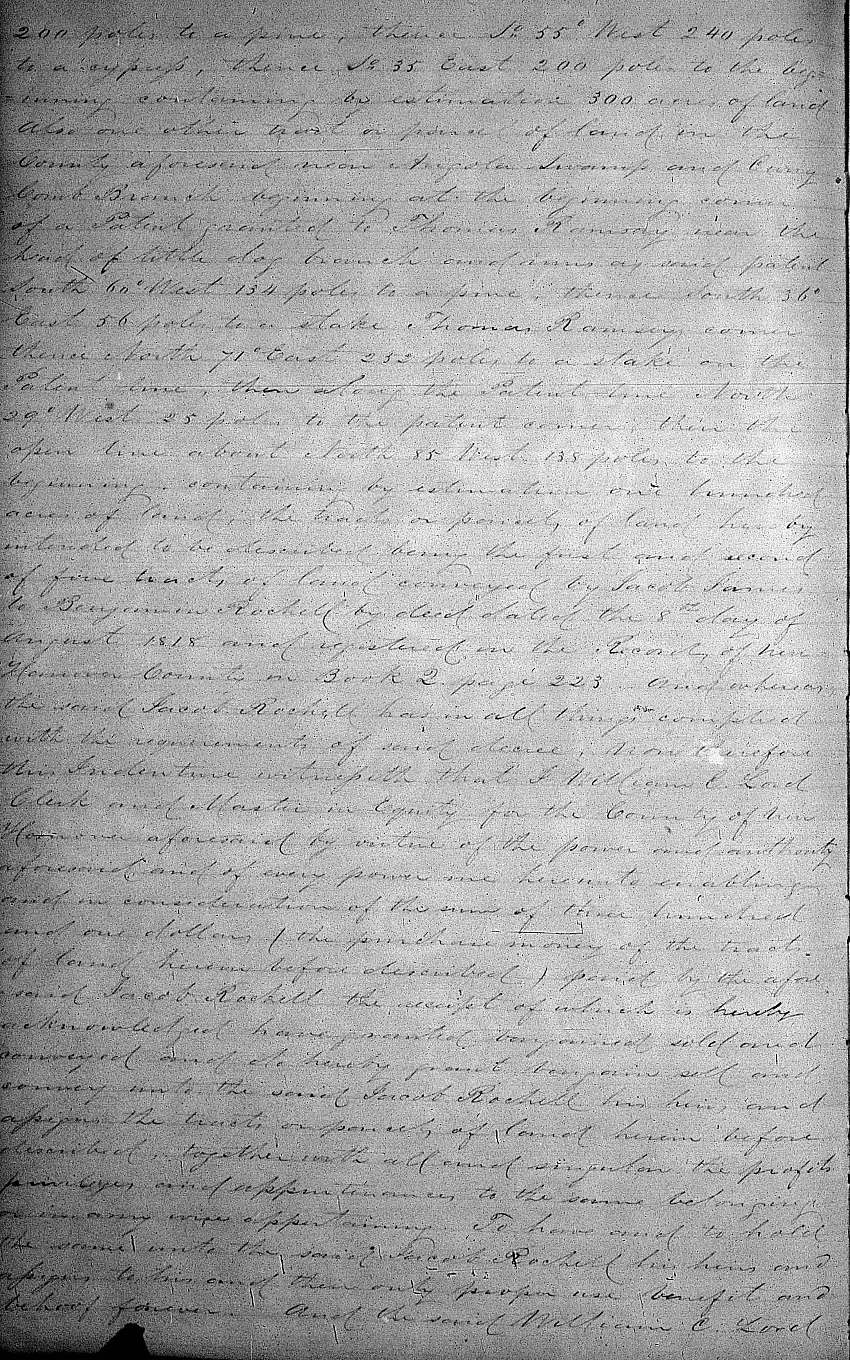 200 poles to a pine, thence So 55° West 240 poles
to a cypress, thence So 35 East 200 poles to the beg-
-inning containing by estimation 300 acres of land
Also one other tract or parcel of land in the
County aforesaid near Angola Swamp and Curry
Comb Branch beginning at the beginning corner
of a Patent granted to Thomas Ramsay near the
head of little dog branch and runs as said patent
South 60° West 134 poles to a pine, thence South 36°
East 56 poles to a stake Thomas Ramsey corner
thence North 71° East 252 poles to a stake on the
Patent line, then along the Patent line North
29° West 25 poles to the patent corner, then the
open line about North 85 West 138 poles to the
beginning, containing by estimation one hundred
acres of land, the tracts or parcels of land hereby
intended to be described being the first and second
of five tracts of land conveyed by Jacob James
to Benjamin Rochell by deed dated the 8th day of
August 1818 and registered in the Records of New
Hanover County in Book 2 page 223 And whereas
the said Jacob Rochell has in all things complied
with the requirements of said decree, Now therefore
this Indenture witnesseth that I William C. Lord
Clerk and Master in Equity for the County of New
Hanover aforesaid by virtue of the power and authority
aforesaid and of every power me hereunto enabling
and in consideration of the sum of three hundred
and one dollars (the purchase money of the tracts
of land herein before described) paid by the afore
-said Jacob Rochell the receipt of which is hereby
acknowledged have granted bargained sold and
conveyed and do hereby grant bargain sell and
convey unto the said Jacob Rochell his heirs and
assigns the tracts or parcels of land herein before
described, together with all and singular the profits
privileges and appurtenances to the same belonging
or in any wise appertaining To have and to hold
the same unto the said Jacob Rochell his heirs and
assigns to his and their only proper use benefit and
behoof forever. And the said William C. Lord